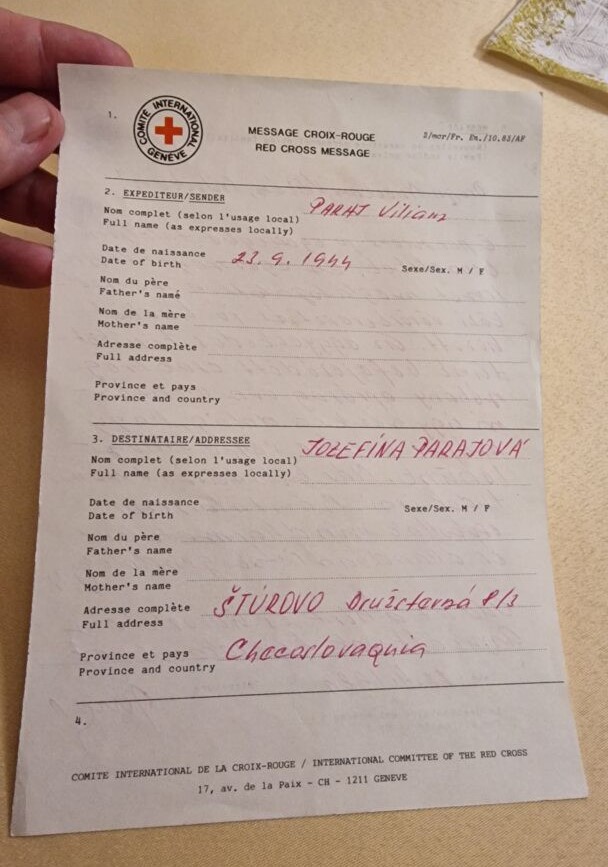 1.
COMITE INTERNATIONAL GENEVE
MESSAGE CROIX-ROUGE
RED CROSS MESSAGE
2/mcr/Fr. En./10.83/AF
2. EXPEDITEUR/SENDER
Nom complet (selon l'usage local) PARAJ Viliam
Full name (as expresses locally)
Date de naissance
Date of birth 23. 9. 1944 Sexe/Sex. M / F
Nom du père
Father's name
Nom de la mère
Mother's name
Adresse complète
Full address
Province et pays
Province and country
3. DESTINATAIRE/ADDRESSEE
Nom complet (selon l'usage local) JOZEFÍNA PARAJOVÁ
Full name (as expresses locally)
Date de naissance
Date of birth Sexe/Sex. M / F
Nom du père
Father's name
Nom de la mère
Mother's name
Adresse complète ŠTÚROVO Družstevná 8/3
Full address
Province et pays Checoslovaquia
Province and country
4.
COMITE INTERNATIONAL DE LA CROIX-ROUGE / INTERNATIONAL COMMITTEE OF THE RED CROSS
17, av. de la Paix - CH - 1211 GENEVE